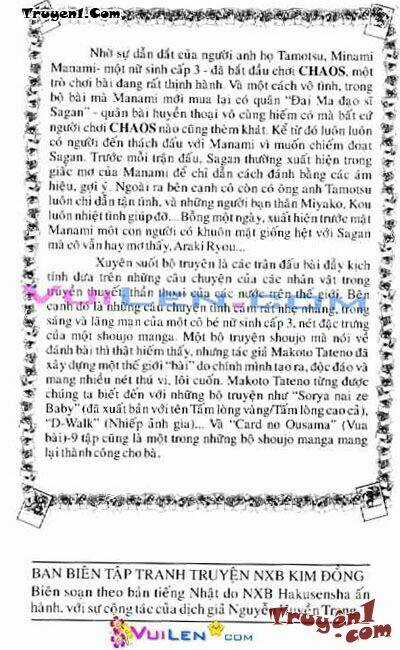 Truyen1.Com
Nhờ sự dẫn dắt của người anh họ Tamotsu, Minami
Manami- một nữ sinh cấp 3 - đã bắt đầu chơi CHAOS, một
trò chơi bài đang rất thịnh hành. Và một cách vô tình, trong
bộ bài mà Manami mới mua lại có quân "Đại Ma đạo sĩ
Sagan" - quân bài huyền thoại vô cùng hiếm có mà bất cứ
người chơi CHAOS nào cũng thèm khát. Kể từ đó luôn luôn
có người đến thách đấu với Manami vì muốn chiếm đoạt
Sagan. Trước mỗi trận đấu, Sagan thường xuất hiện trong
giấc mơ của Manami để chỉ dẫn cách đánh bằng các ám
hiệu, gợi ý. Ngoài ra bên cạnh cô còn có ông anh Tamotsu
luôn chỉ dẫn tận tình, và những người bạn thân Miyako, Kou
luôn nhiệt tình giúp đỡ... Bỗng một ngày, xuất hiện trước mặt
Manami một con người có khuôn mặt giống hệt với Sagan
mà cô vẫn hay mơ thấy, Araki Ryou...
Xuyên suốt bộ truyện là các trận đấu bài đầy kịch
tính dựa trên những câu chuyện của các nhân vật trong
truyền thuyết, thần thoại của các nước trên thế giới. Bên
cạnh đó là những câu chuyện tình cảm rất nhẹ nhàng, trong
sáng và lãng mạn của một cô bé nữ sinh cấp 3, nét đặc trưng
của một shoujo manga. Một bộ truyện shoujo mà nói về
đánh bài thì thật hiếm thấy, nhưng tác giả Makoto Tateno đã
xây dựng một thế giới "bài" do chính mình tạo ra, độc đáo và
mang nhiều nét thú vị, lôi cuốn. Makoto Tateno từng được
chúng ta biết đến với những bộ truyện như "Sorya nai ze
Baby" (đã xuất bản với tên Tấm lòng vàng/Tấm lòng cao cả),
"D-Walk" (Nhiếp ảnh gia)... Và "Card no Ousama" (Vua
bài)-9 tập cũng là một trong những bộ shoujo manga mang
lại thành công cho bà.
VUILEN.COM
BAN BIÊN TẬP TRANH TRUYỆN NXB KIM ĐỒNG
Biên soạn theo bản tiếng Nhật do NXB Hakusensha ấn
hành, với sự cộng tác của dịch giả Nguyễn Huyền Trang
VUILEN.COM
Truyen1.Com